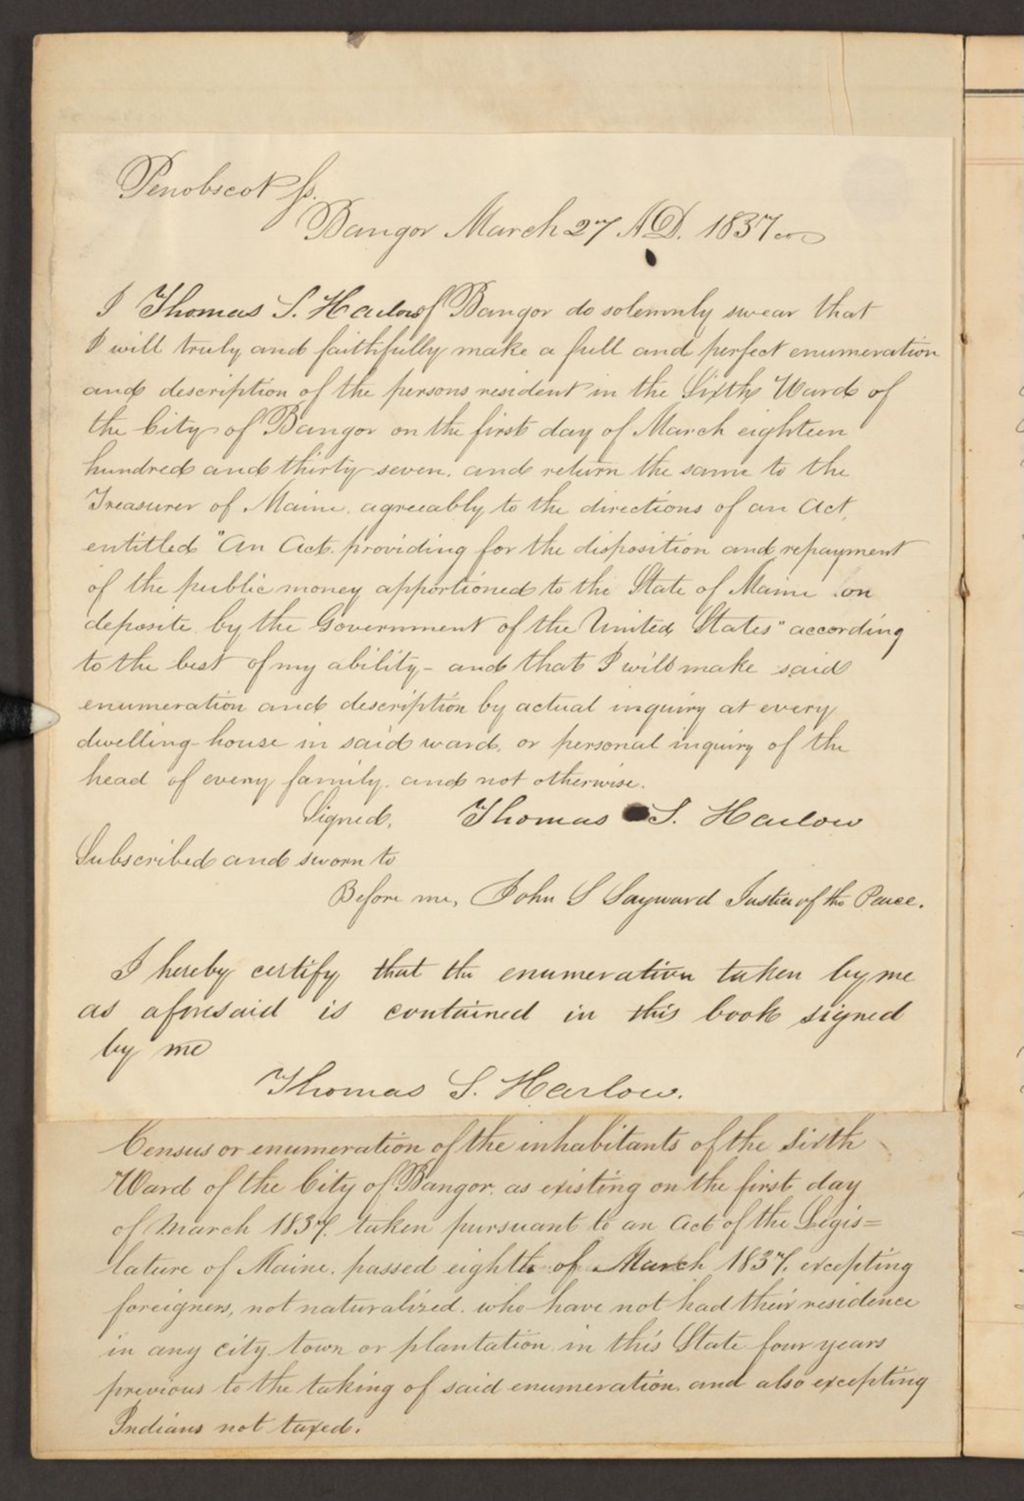 Penobscot ss.
Bangor March 27 A.D. 1837
I Thomas S. Harlow of Bangor do solemnly swear that
I will truly and faithfully make a full and perfect enumeration
and description of the persons resident in the Sixth Ward of
the City of Bangor on the first day of March eighteen
hundred and thirty seven, and return the same to the
Treasurer of Maine, agreeably to the directions of an Act,
entitled "An Act providing for the disposition and repayment
of the public money apportioned to the State of Maine on
deposite by the Government of the United States" according
to the best of my ability - and that I will make said
enumeration and description by actual inquiry at every
dwelling-house in said ward, or personal inquiry of the
head of every family, and not otherwise.
Signed, Thomas S. Harlow
Subscribed and sworn to
Before me, John S Sayward Justice of the Peace.
I hereby certify that the enumeration taken by me
as aforesaid is contained in this book signed
by me
Thomas S. Harlow.
Census or enumeration of the inhabitants of the Sixth
Ward of the City of Bangor, as existing on the first day
of March 1837, taken pursuant to an Act of the Legis=
lature of Maine, passed eighth of March 1837, excepting
foreigners, not naturalized, who have not had their residence
in any city, town or plantation in this State four years
previous to the taking of said enumeration, and also excepting
Indians not taxed.